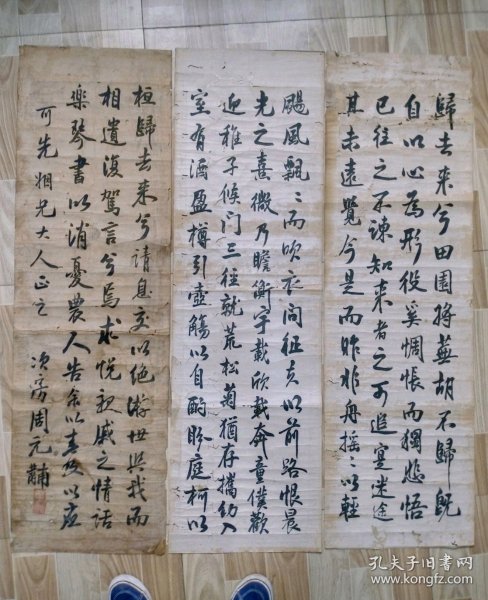 歸去来兮田園將蕪胡不歸既
自以心為形役奚惆悵而獨悲悟
已往之不諫知来者之可追寔迷途
其未遠覺今是而昨非舟摇〻以輕
颺風飄〻而吹衣问征夫以前路恨晨
光之喜微乃瞻衡宇載欣載奔童僕歡
迎稚子候门三徑就荒松菊猶存攜幼入
室有酒盈樽引壺觴以自酌眄庭柯以
桓歸去来兮請息交以绝游世與我而
相遺復駕言兮焉求悦親戚之情话
樂琴書以消憂農人告余以春及以
可先姻兄大人正之
周元黼
孔夫子旧书网
www.kongfz.com